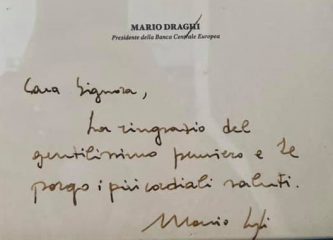 MARIO DRAGHI
Presidente della Banca Centrale Europea
Cara Signora,
La ringrazio del
gentilissimo pensiero e Le
porgo i più cordiali saluti.
Mario